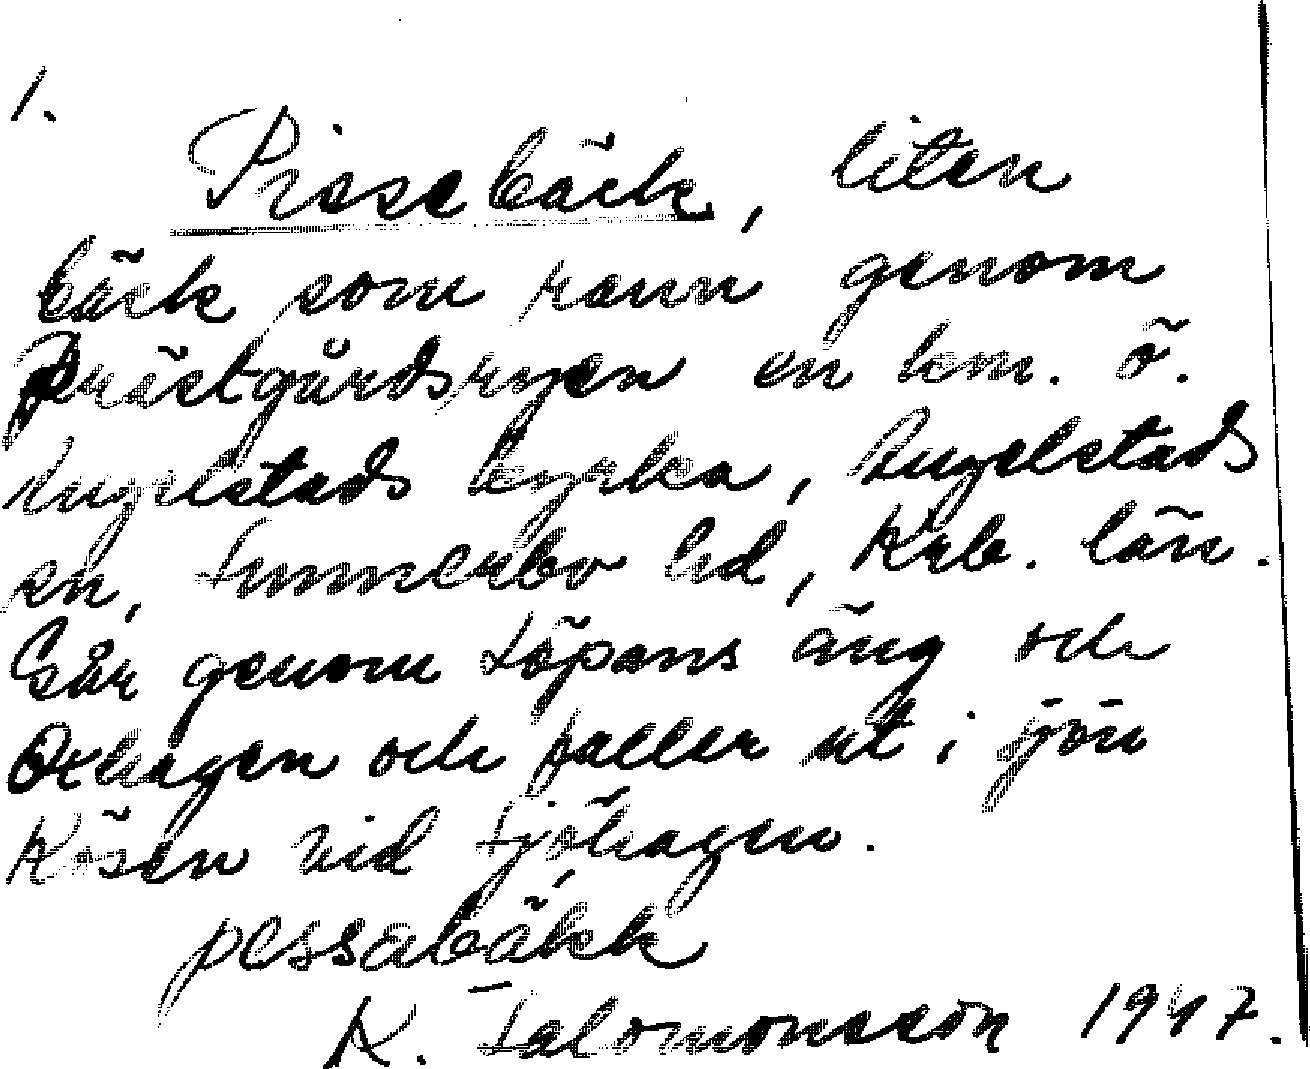 1.
Pissebäck, liten
bäck som rann genom
prästgårdsryen en km. ö.
Angelstads kyrka, Angelstads
sn, Sunnerbo hd, Krb. län.
Går genom Töpans äng och
Oxhagen och faller ut i sjön
Kösen vid Sjöhagen.
pessabäkk
K. Salomonsson 1947.